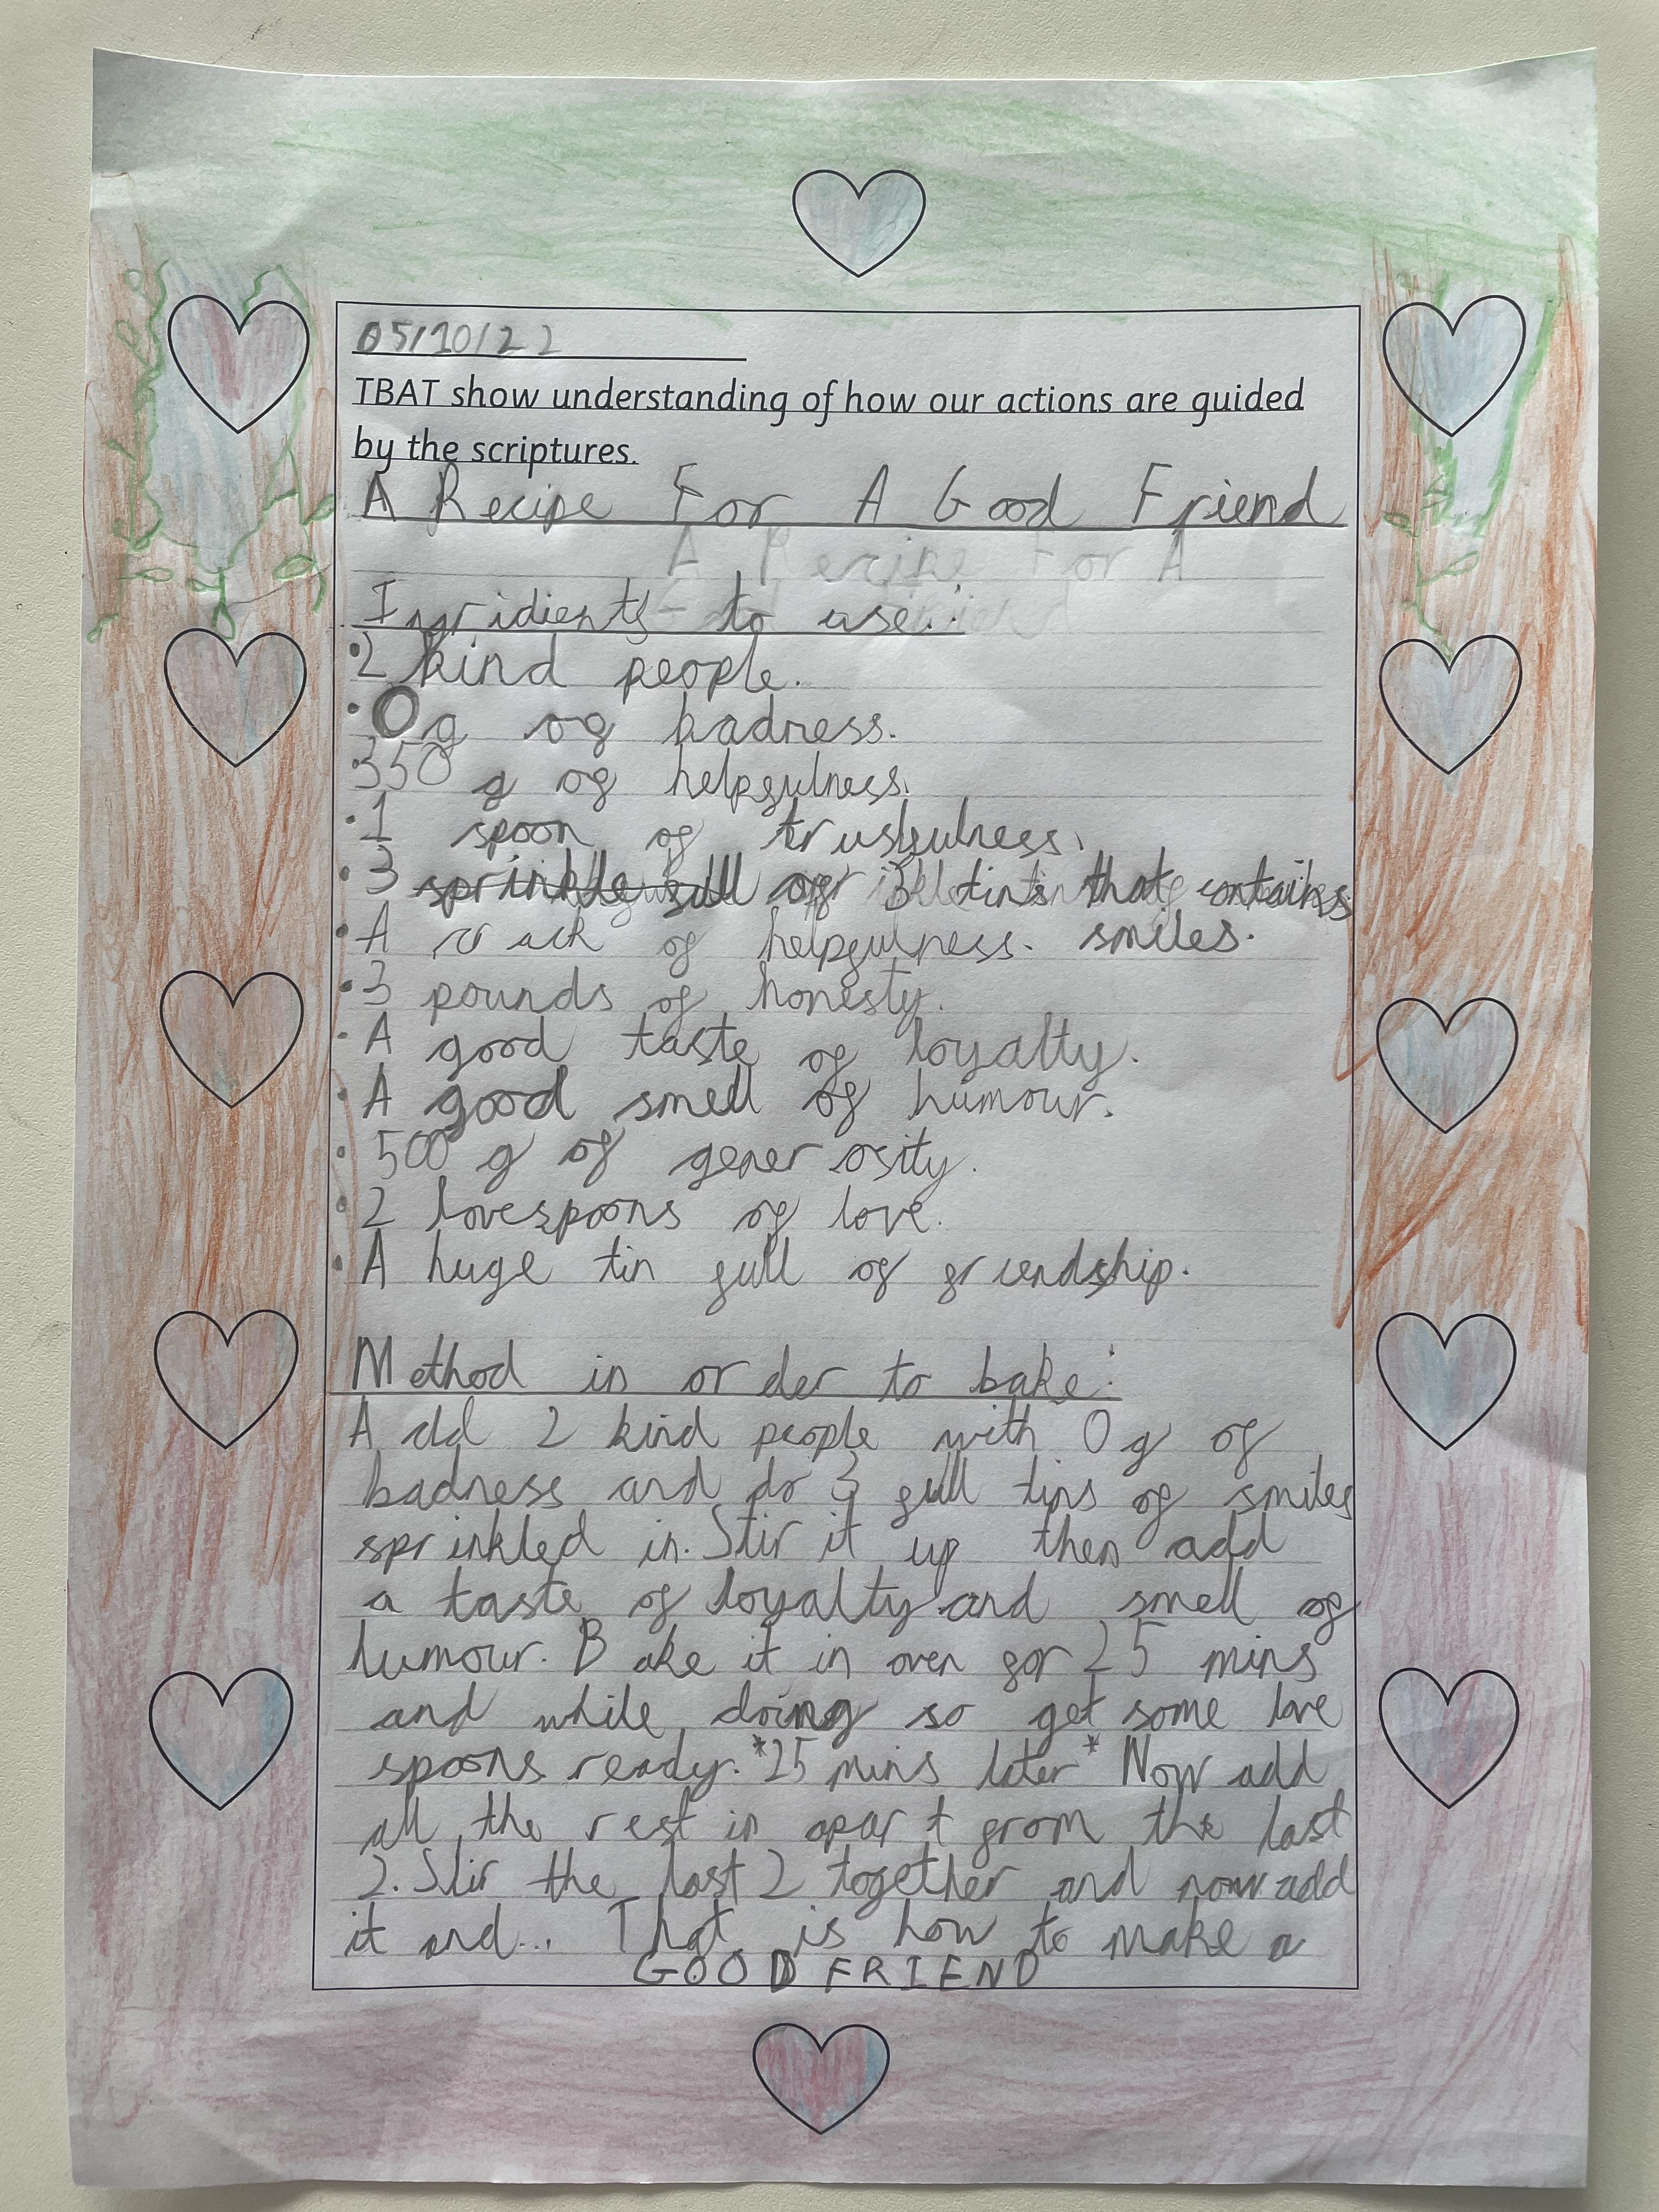 05/10/22
TBAT show understanding of how our actions are guided
by the scriptures.
A Recipe For A Good Friend
A Recipe For A
Ingridients to use:
• 2 kind people.
• 0g of badness.
• 350 g of helpfulness.
• 1 spoon of trustfulness.
• 3 tins that contains
• A of helpfulness. smiles.
• 3 pounds of honesty.
• A good taste of loyalty.
• A good smell of humour.
• 500 g of generosity.
• 2 lovespoons of love.
• A huge tin full of friendship.
Method in order to bake:
Add 2 kind people with 0g of
badness and do 3 full tins of smiles
sprinkled in. Stir it up then add
a taste of loyalty and smell of
humour. Bake it in oven for 25 mins
and while doing so get some love
spoons ready. *25 mins later* Now add
all the rest in apart from the last
2. Stir the last 2 together and now add
it and... That is how to make a
GOOD FRIEND